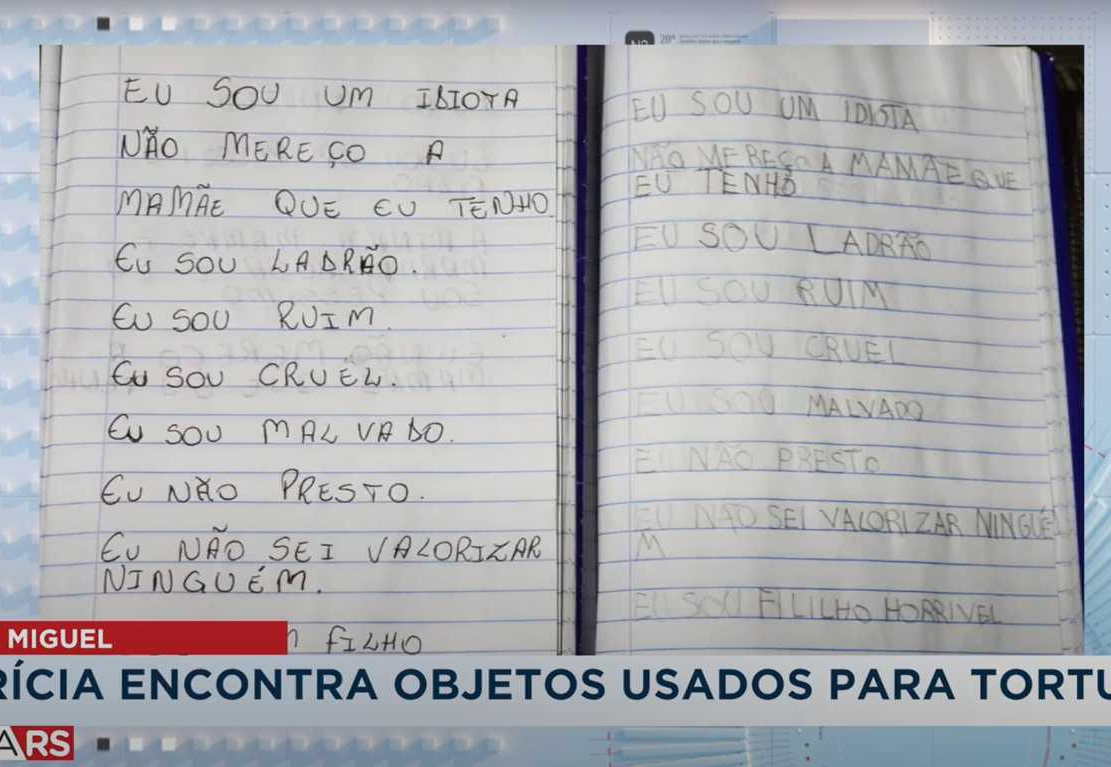 EU SOU UM IDIOTA
NÃO MEREÇO A
MAMÃE QUE EU TENHO.
EU SOU LADRÃO.
EU SOU RUIM.
EU SOU CRUÉL.
EU SOU MALVADO.
EU NÃO PRESTO.
EU NÃO SEI VALORIZAR
NINGUÉM.
FILHO
EU SOU UM IDIOTA
NÃO MEREÇO A MAMÃE QUE
EU TENHO
EU SOU LADRÃO
EU SOU RUIM
EU SOU CRUEL
EU SOU MALVADO
EU NÃO PRESTO
EU NÃO SEI VALORIZAR NINGUÉ
M
EU SOU FILILHO HORRIVEL
20°
MIGUEL
RÍCIA ENCONTRA OBJETOS USADOS PARA TORTU
ARS